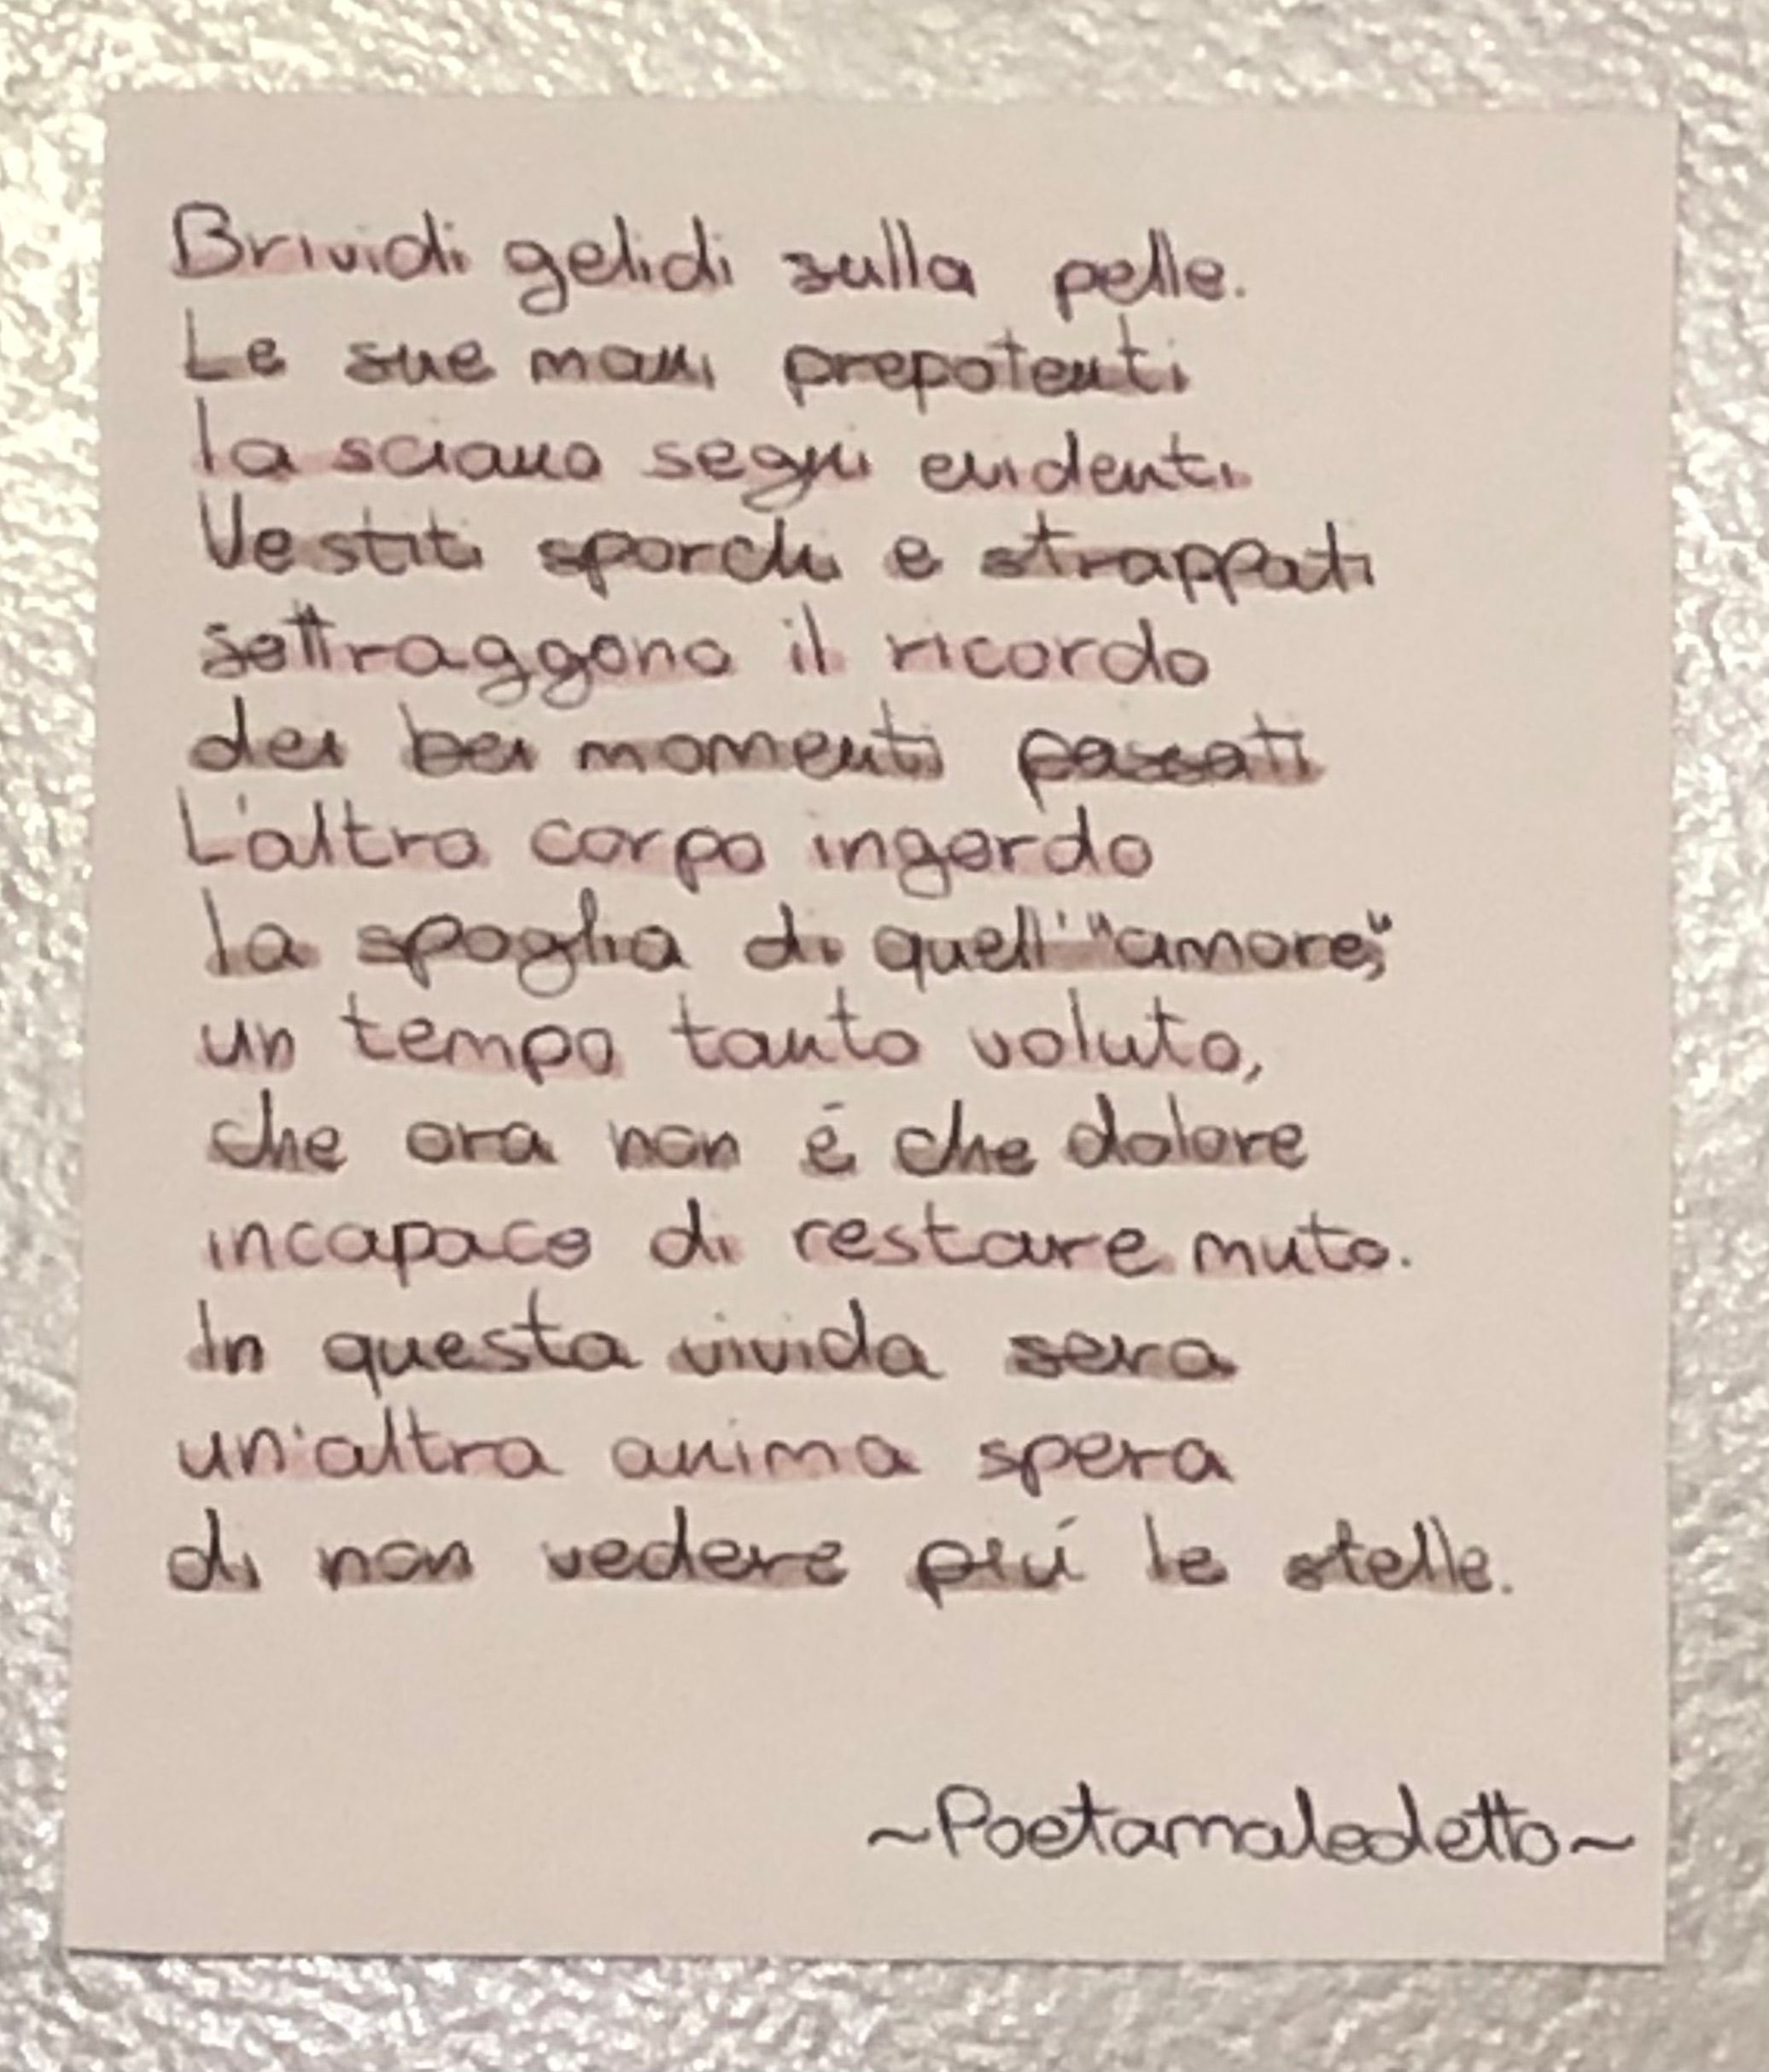 Brividi gelidi sulla pelle.
Le sue mani prepotenti
lasciano segni evidenti.
Vestiti sporchi e strappati
sottraggono il ricordo
dei bei momenti passati
L'altro corpo ingordo
la spoglia di quell' "amore,"
un tempo tanto voluto,
che ora non é che dolore
incapace di restare muto.
In questa vivida sera
un'altra anima spera
di non vedere piú le stelle.
~Poetamaledetto~